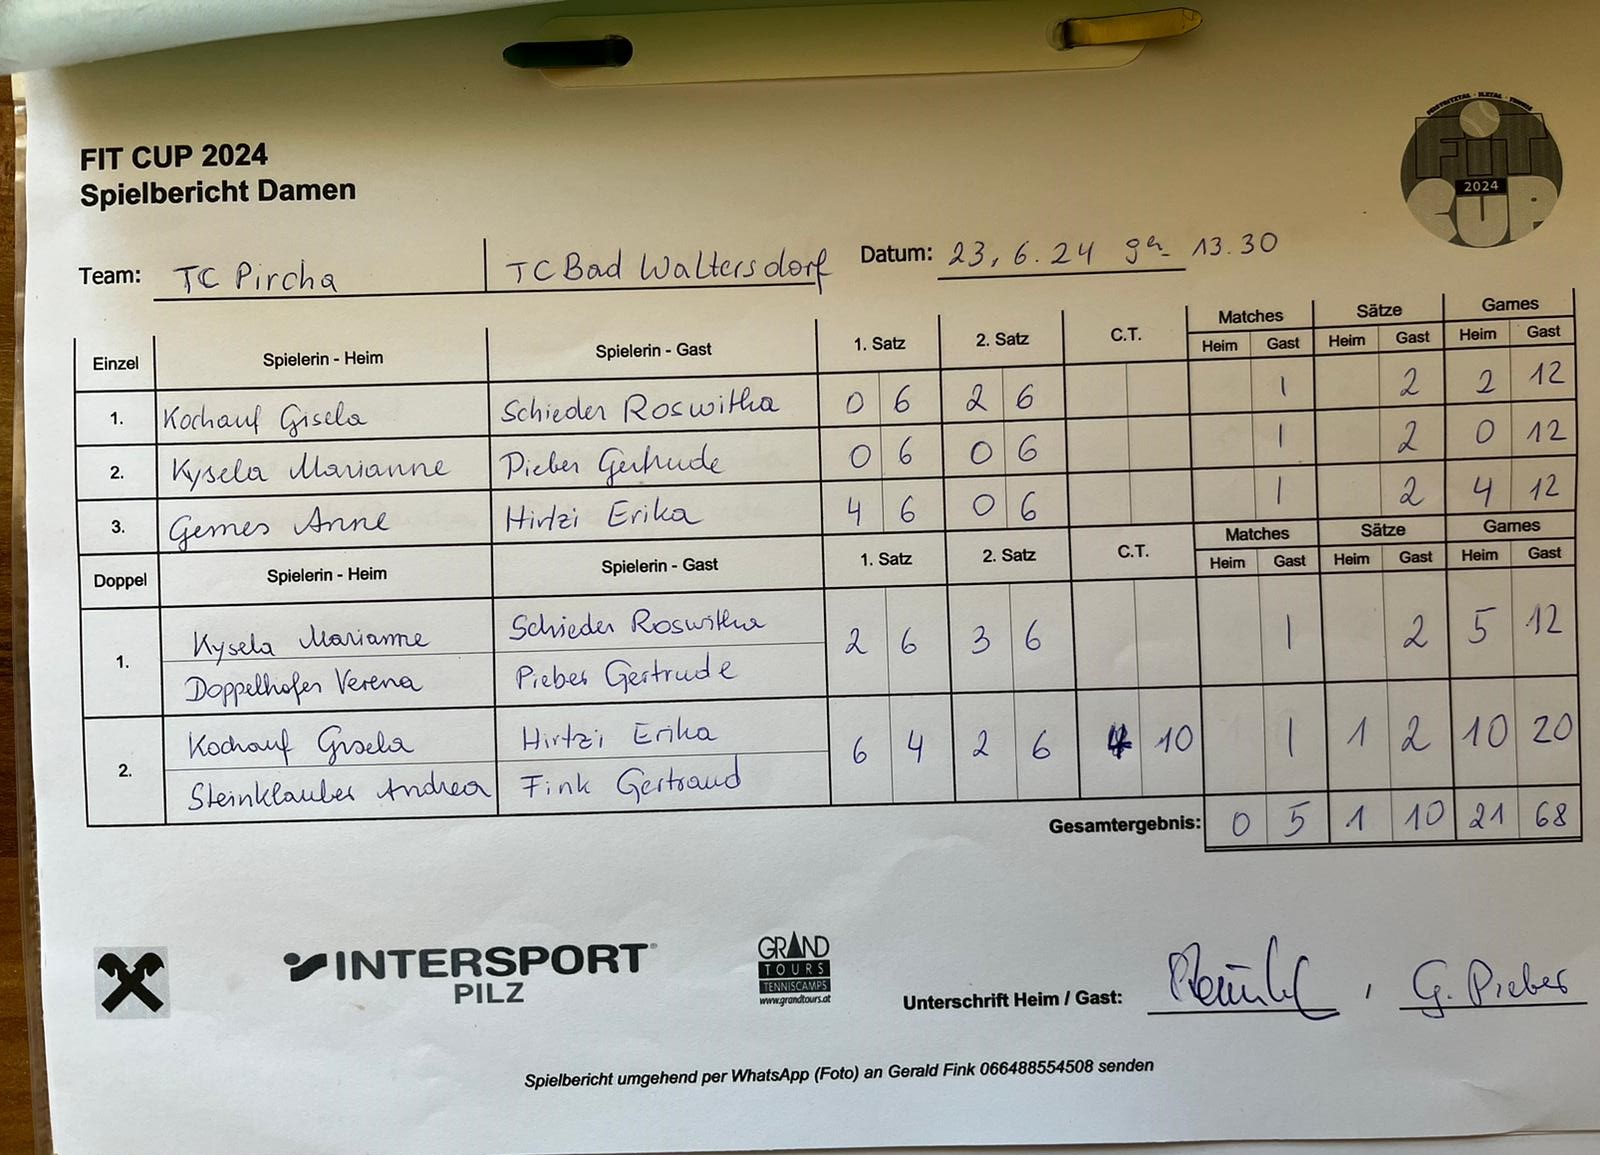 FIT CUP 2024
Spielbericht Damen
FIT
2024
CUP
Team: TC Pircha | TC Bad Waltersdorf Datum: 23.6.24 13.30
Einzel Spielerin - Heim Spielerin - Gast 1. Satz 2. Satz C.T. Matches Sätze Games
Heim Gast Heim Gast Heim Gast
1. Kochauf Gisela Schieder Roswitha 0 6 2 6 1 2 2 12
2. Kysela Marianne Pieber Gertrude 0 6 0 6 1 2 0 12
3. Gemes Anne Hirtzi Erika 4 6 0 6 1 2 4 12
Doppel Spielerin - Heim Spielerin - Gast 1. Satz 2. Satz C.T. Matches Sätze Games
Heim Gast Heim Gast Heim Gast
1. Kysela Marianne Schieder Roswitha 2 6 3 6 1 2 5 12
Doppelhofer Verena Pieber Gertrude
2. Kochauf Gisela Hirtzi Erika 6 4 2 6 4 10 1 1 2 10 20
Steinklauber Andrea Fink Gertraud
Gesamtergebnis: 0 5 1 10 21 68
INTERSPORT
PILZ
GRAND
TOURS
TENNISCAMPS
www.grandtours.at
Unterschrift Heim / Gast: , G. Pieber
Spielbericht umgehend per WhatsApp (Foto) an Gerald Fink 066488554508 senden